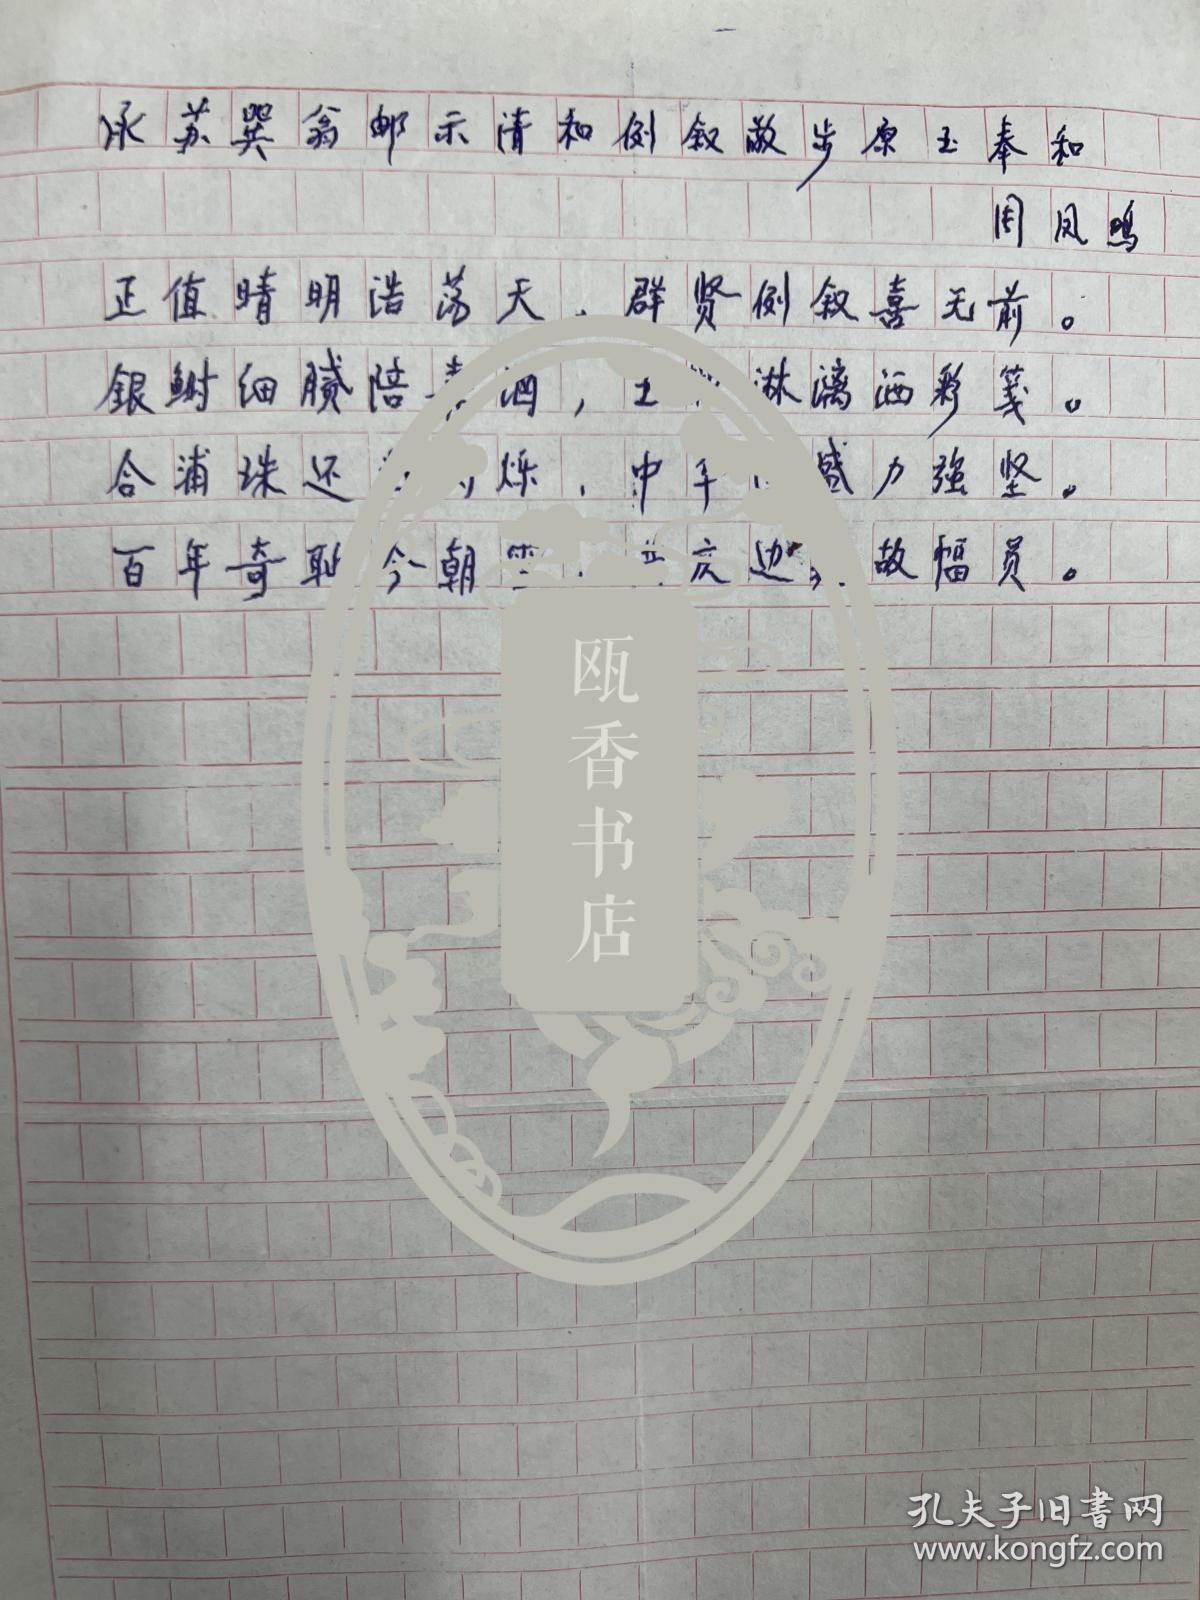 承苏巽翁邮示清和例叙敬步原玉奉和
周凤鸣
正值晴明浩荡天，群贤例叙喜无前。
銀鲥细腻陪 酒， 淋漓洒彩笺。
合浦珠还 烁，中 盛力强坚。
百年奇耻今朝 ， 庆边 故幅员。
瓯香书店
孔夫子旧书网
www.kongfz.com